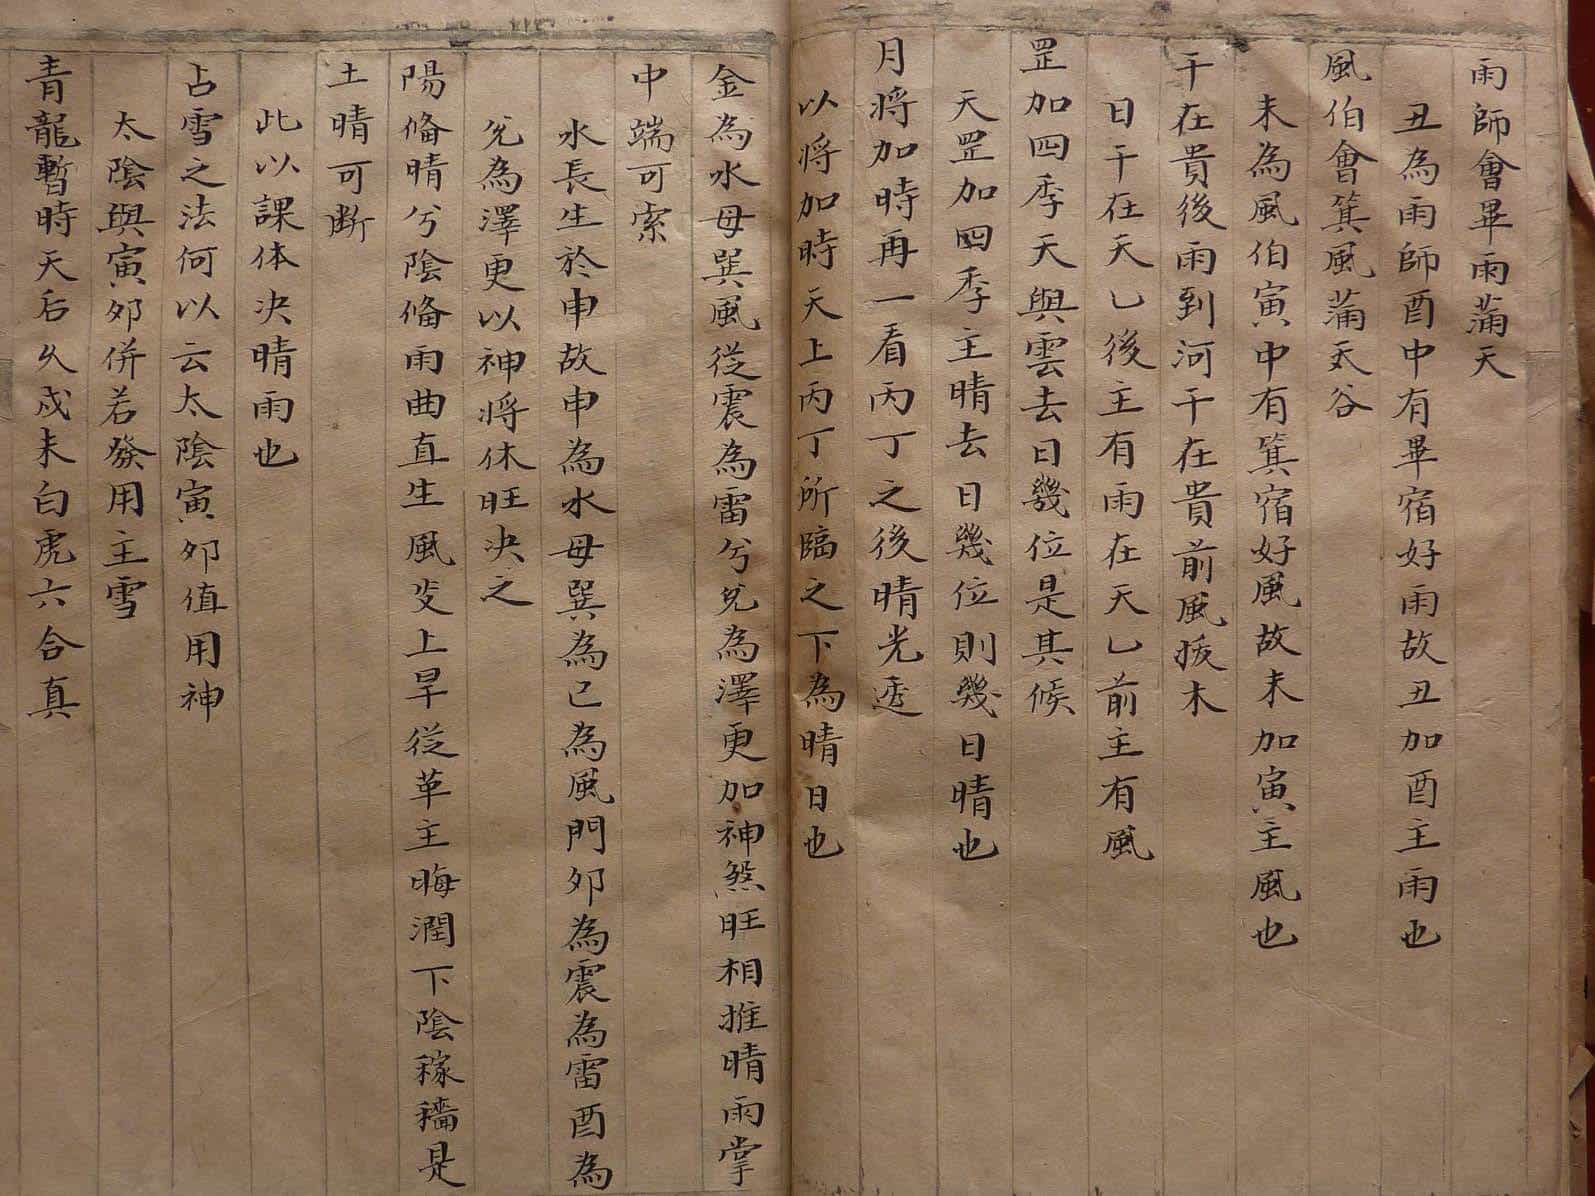 雨師會畢雨滿天
丑為雨師酉中有畢宿好雨故丑加酉主雨也
風伯會箕風滿天谷
未為風伯寅中有箕宿好風故未加寅主風也
干在貴後雨到河干在貴前風拔木
日干在天乙後主有雨在天乙前主有風
罡加四季天與雲去日幾位是其候
天罡加四季主晴去日幾位則幾日晴也
月將加時再一看丙丁之後晴光透
以將加時天上丙丁所臨之下為晴日也
金為水母巽風從震為雷兮兌為澤更加神煞旺相推晴雨掌
中端可索
水長生於申故申為水母巽為巳為風門夘為震為雷酉為
兌為澤更以神將休旺决之
陽偹晴兮陰偹雨曲直生風炎上旱從革主晦潤下陰稼穡是
土晴可断
此以課体决晴雨也
占雪之法何以云太陰寅夘值用神
太陰與寅夘併若發用主雪
青龍暫時天后久戍未白虎六合真